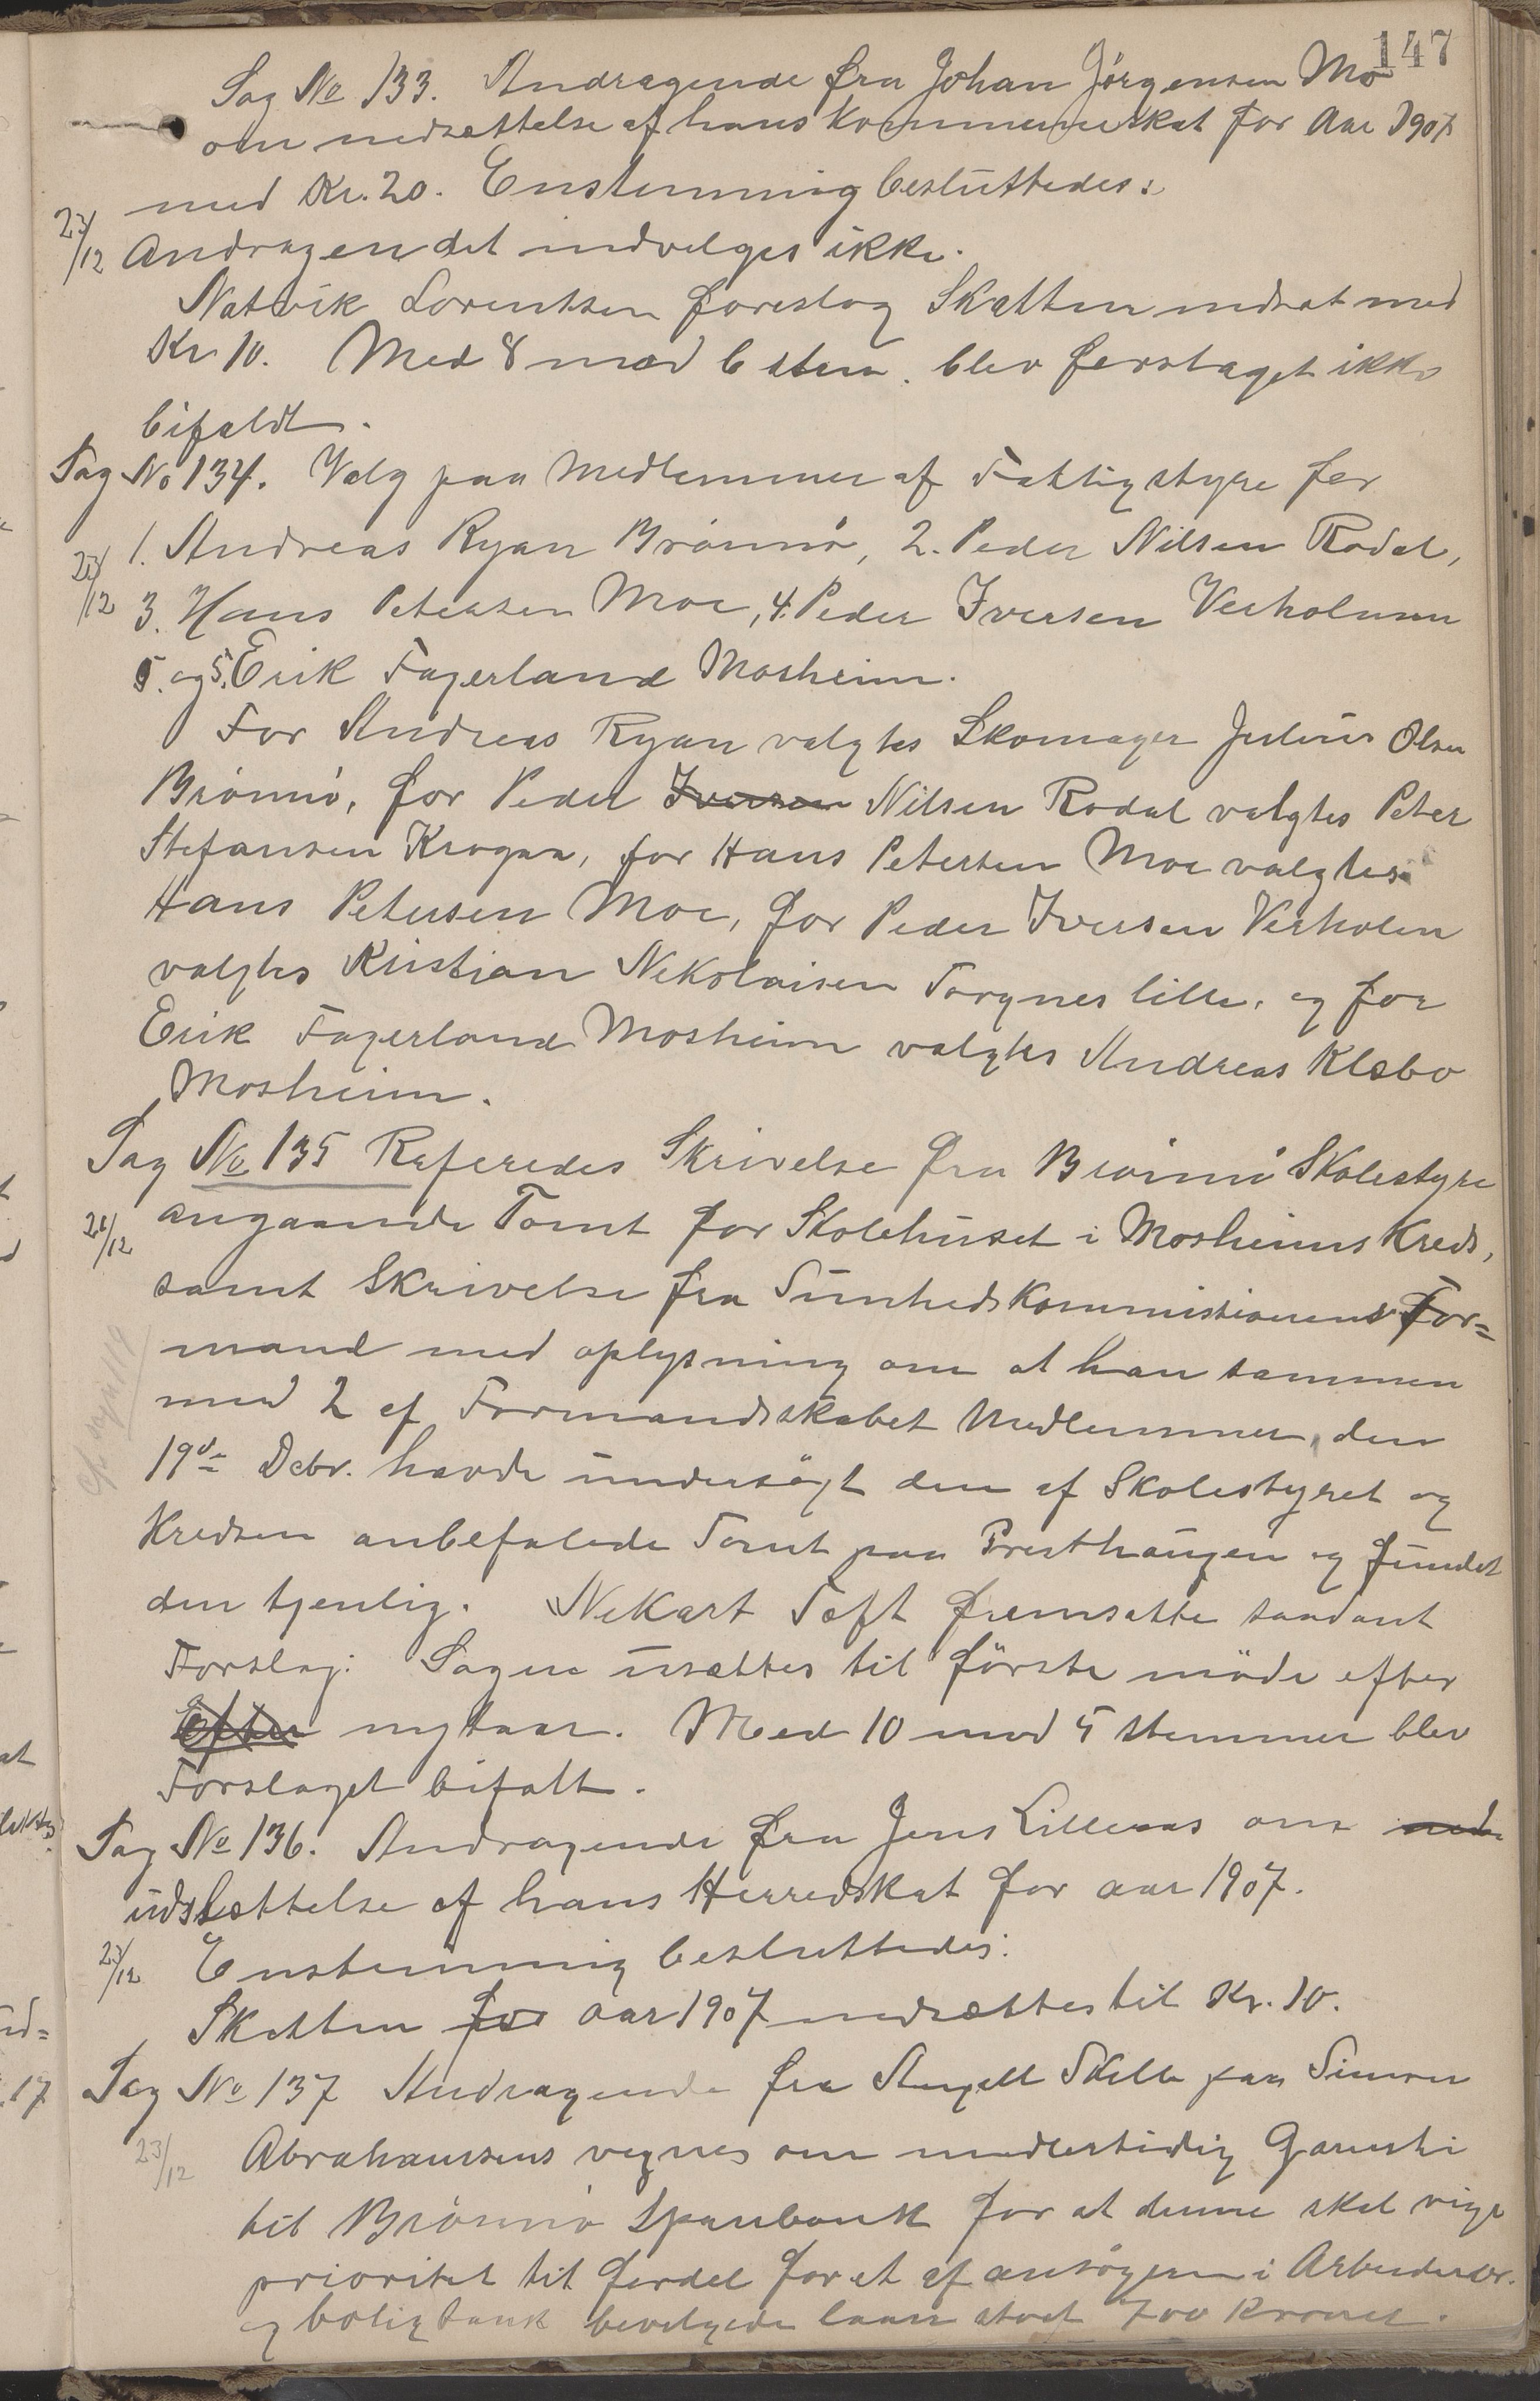 147
Sag No 133. Andragende fra Johan Jörgensen Mo
om nedsættelse af hans Kommuneskat for Aar 1907
med Kr. 20. Enstemmig besluttedes:
23/12 Andragendet indvilges ikke.
Natvik Lorentsen foreslog Skatten nedsat med
Kr 10. Med 8 mod 6 stem. blev forslaget ikke
bifaldt.
Sag No 134. Valg paa Medlemmer af Fattigstyre for
1. Andreas Ryan Brönnö, 2. Peder Nilsen Rodal,
23/12 3. Hans Petersen Moe, 4. Peder Iversen Verholmen
5. og 5. Erik Fagerland Mosheim.
For Andreas Ryan valgtes Skomager Julius Olsen
Brönnö, for Peder Iversen Nilsen Rodal valgtes Peter
Stefansen Krogaa, for Hans Petersen Moe valgtes
Hans Petersen Moe, for Peder Iversen Verholen
valgtes Kristian Nikolaisen Torgnes lille, og for
Erik Fagerland Mosheim valgtes Andreas Klæbo
Mosheim.
Sag No 135 Referedes Skrivelse fra Brönnö Skolestyre
21/12 angaaende Tomt for Skolehuset i Mosheims Kreds,
samt Skrivelse fra Sundhedskommissionens For=
mand med oplysning om at han sammen
med 2 af Formandskabet Medlemmer, den
19de Debr. havde undersögt den af Skolestyret og
Kredsen anbefalede Tomt paa Presthaugen og fundet
den tjenlig. Nekart Toft fremsatte saadant
Forslag: Sagen usættes til förste möde efter
Efter nytaar. Med 10 mod 5 stemmer blev
Forslaget bifalt.
Sag No 136. Andragende fra Jens Lilleaas om ned-
udslettelse af hans Herredskat for aar 1907.
23/12 Enstemmig besluttedes:
Skatten for aar 1907 nedsættes til Kr. 10.
Sag No 137 Andragende fra Angell Skille paa Simon
23/12 Abrahamsens vegnes om midlertidig Garanti
til Brönnö Sparebank for at denne skal vige
prioritet til fordel for et af ansögeren i Arbeiderbr.
og boligbank bevilgede laan stort 700 Kroner.